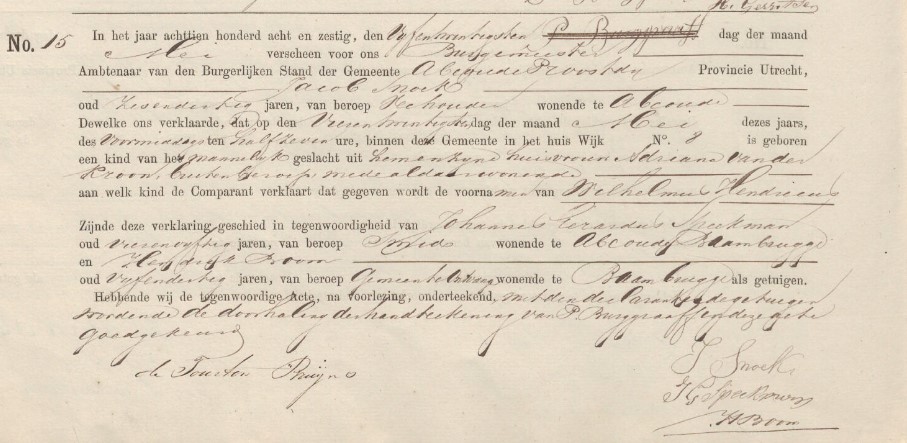 H. Gerritsen
No. 15 In het jaar achttien honderd acht en zestig, den Vyfentwintigsten P. Burggraaff dag der maand
Mei verscheen voor ons Burgemeester
Ambtenaar van den Burgerlijken Stand der Gemeente Abcoude Proostdy Provincie Utrecht,
Jacob Snoek
oud Zesendertig jaren, van beroep wonende te Abcoude
Dewelke ons verklaarde, dat op den Vierentwintigsten dag der maand Mei dezes jaars,
des Voormiddags ten half zeven ure, binnen deze Gemeente in het huis Wijk No. 8 is geboren
een kind van het mannelyk geslacht uit hem en zyne huisvrouw Adriana van der
Kroon, buiten beroep mede aldaar wonende
aan welk kind de Comparant verklaart dat gegeven wordt de voornamen van Wilhelmus Hendricus
Zijnde deze verklaring geschied in tegenwoordigheid van Johannes Gerardus Speekman
oud Vierenvyftig jaren, van beroep Smid wonende te Abcoude Baambrugge
en Hendrik Boom
oud Vyfendertig jaren, van beroep Gemeente wonende te Baambrugge als getuigen.
Hebbende wij de tegenwoordige Acte, na voorlezing, onderteekend, met den de getuigen
wordende de doorhaling der handteekening van P. Burggraaff in deze acte
goedgekeurd
J Snoek
J G Speekman
H Boom